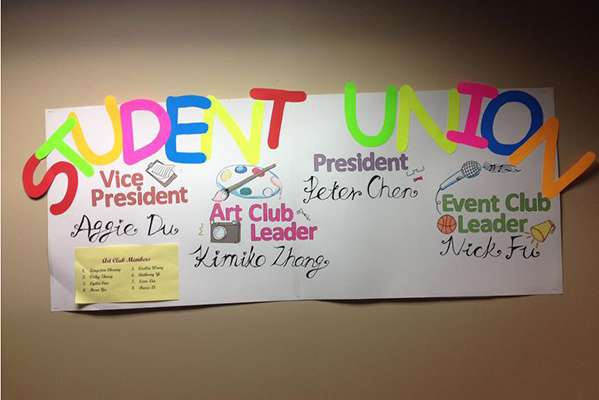 STUDENT UNION
Vice
President
Aggie Du
Art Club
Leader
Kimiko Zhang
President
Peter Chen
Event Club
Leader
Nick Fu
Art Club Members
1.
2. Vicky Zhang
3. Lydia
4.
5. Wang
6. Anthony Ye
7.
8.